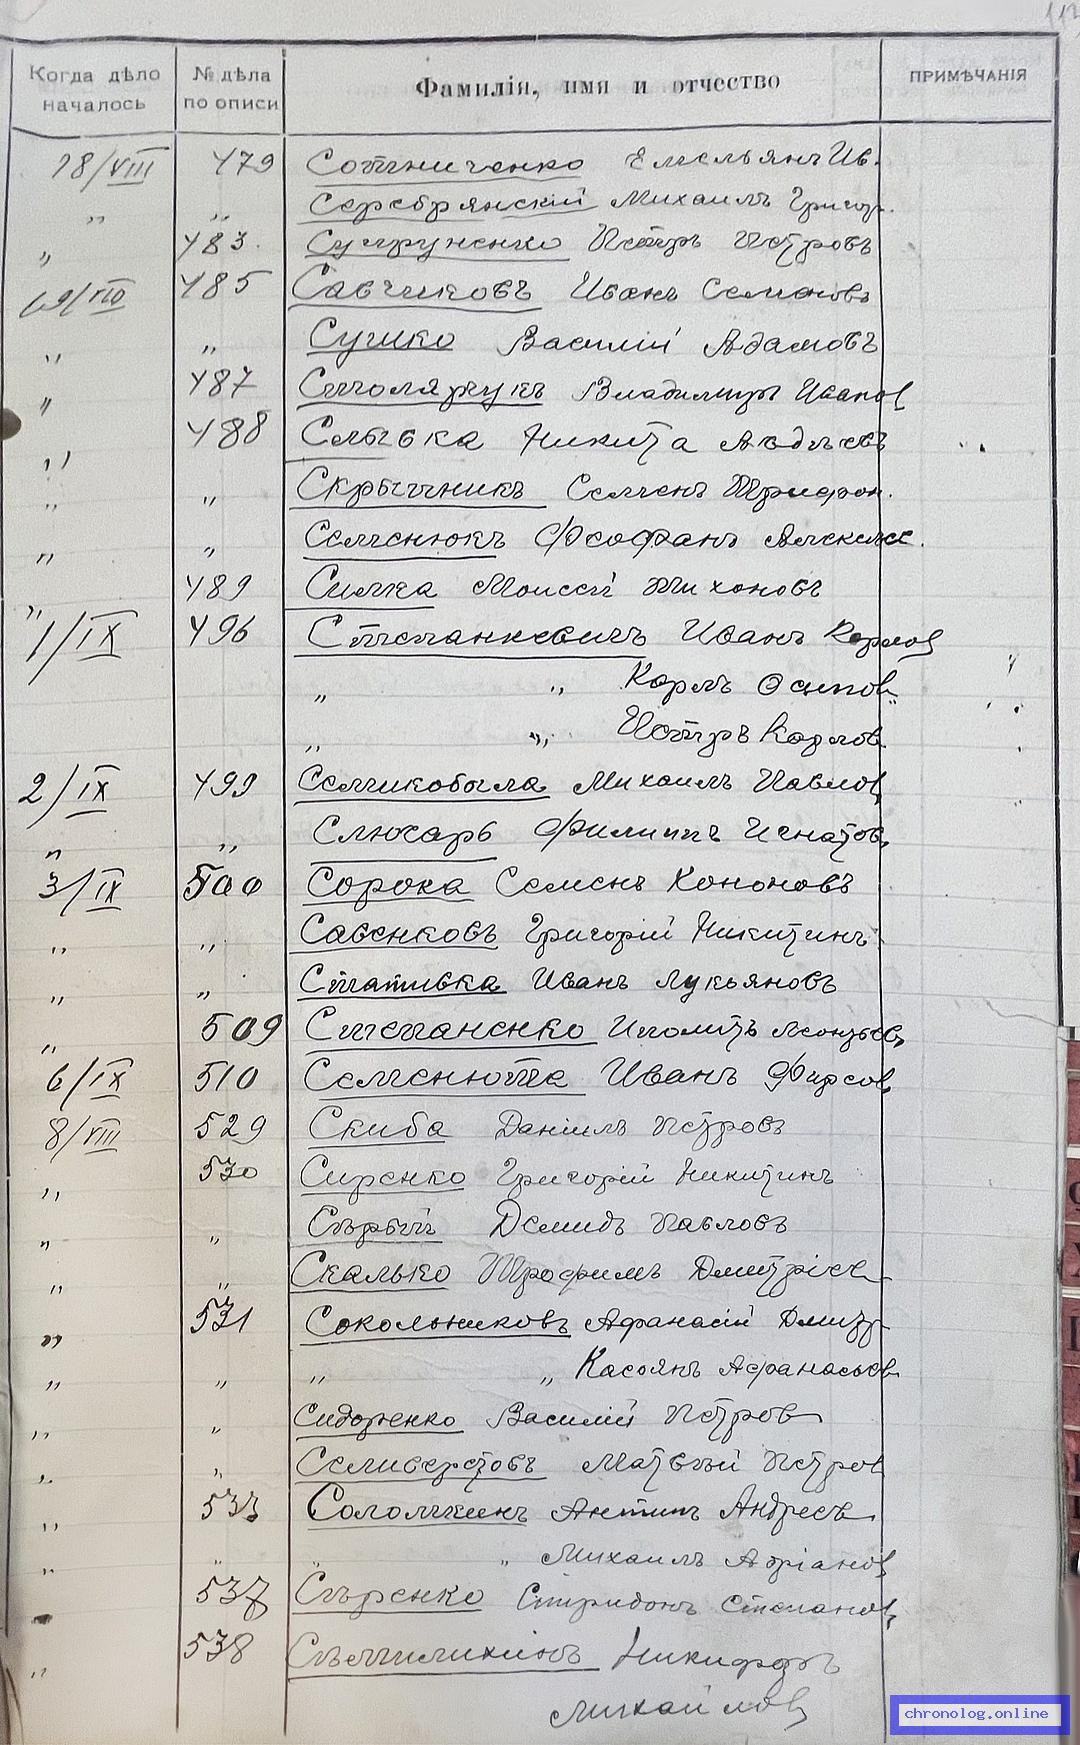 Когда дѣло началось № дѣла по описи Фамилія, имя и отчество ПРИМѢЧАНІЯ
18/VIII 479 Сотниченко Емельянъ Ив.
„ „ Серебрянскій Михаилъ Григор.
„ 483. Супруненко Петръ Петровъ
19/VIII 485 Савчиковъ Иванъ Семеновъ
„ „ Сушко Василій Адамовъ
„ 487 Столярчукъ Владимиръ Иванов
„ 488 Сливка Никита Авдѣевъ
„ „ Скрыпникъ Семенъ Трифон.
„ „ Семенюкъ Феофанъ Алексѣе.
„ 489 Силка Моисей Тихоновъ
1/IX 496 Степанкевичъ Иванъ Карлов
„ „ Карлъ Осипов
„ „ Петръ Карлов
2/IX 499 Семикобыла Михаилъ Павлов
„ „ Слюсарь Филиппъ Игнатов
3/IX 500 Сорока Семенъ Кононовъ
„ „ Савенковъ Григорій Никитинъ
„ „ Статывка Иванъ Лукьяновъ
„ 509 Степаненко Иполитъ Леонтьев
6/IX 510 Семенюта Иванъ Фирсов
8/VIII 529 Скиба Даніилъ Петровъ
„ 530 Сиренко Григорій Никитинъ
„ „ Сѣрый Демидъ Павловъ
„ „ Скалько Трофимъ Дмитріев
„ 531 Сокольниковъ Афанасій Дмитр
„ „ „ „ Касьянъ Афанасьев
„ „ Сидоренко Василій Петров
„ „ Селиверстовъ Матвѣй Петров
„ 533 Соломкинъ Антипъ Андреев
„ „ „ „ Михаилъ Адріанов
537 Сѣренко Спиридонъ Степанов
„ 538 Никифоръ
Михайлов
chronolog.online